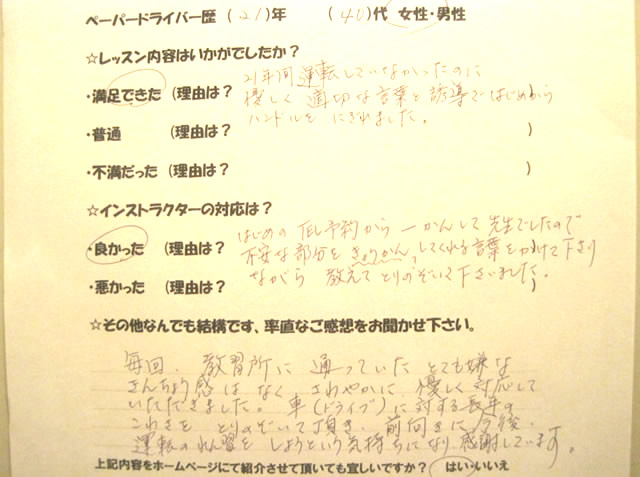 ペーパードライバー歴 (21)年 (40)代 女性・男性
☆レッスン内容はいかがでしたか?
・満足できた (理由は? 21年間運転していなかったのに
優しく 適切な言葉と誘導ではじめから
ハンドルを にぎれました。 )
・普通 (理由は? )
・不満だった (理由は? )
☆インストラクターの対応は?
はじめの TEL予約から 一かんして 先生でしたので
・良かった (理由は? 不安な部分を きょうかん してくれる言葉をかけて下さり
ながら 教えて とりのぞいて下さいました。 )
・悪かった (理由は?
☆その他なんでも結構です、率直なご感想をお聞かせ下さい。
毎回、教習所に 通っていた とても嫌な
きんちょう感は なく、さわやかに 優しく 対応して
いただきました。車(ドライブ)に対する長年の
こわさを とりのぞいて頂き、前向きに 今後、
運転のれん習を しようという気持ちになり感謝しています。
上記内容をホームページにて紹介させて頂いても宜しいですか? はい・いいえ